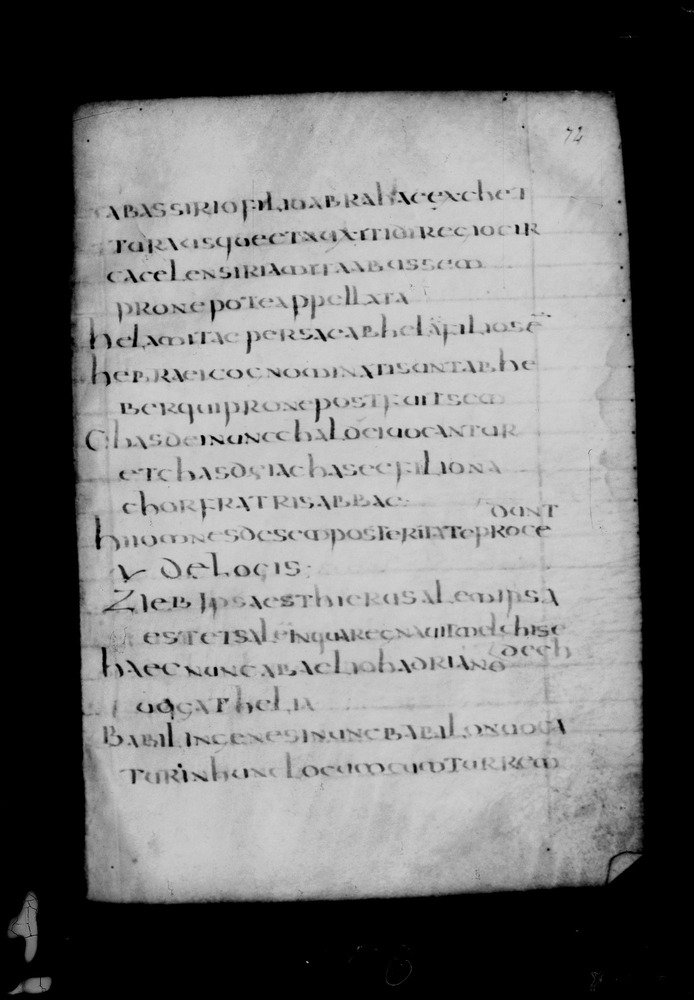 74
ABASSIRIOFILIOABRAHACEXCHET
TURAUSQUECTAUXITIDIREGIOCIR
CACELENSIRIAMITAABUSSEM
PRONEPOTEAPPELLATA
HELAMITAEPERSAEABHELAFILIOSE
HEBRAEICOGNOMINATISUNTABHE
BERQUIPRONEPOSTFUITSEM
CHASDEINUNCCHALDEIUOCANTUR
ETCHASDSIACHASECFILIONA
CHORFRATRISABBAE
DUNT
HIIOMNESDESEMPOSTERITATEPROCE
V DELOCIS
ZIEBIPSAESTHIERUSALEMIPSA
ESTETSALEINQUAREGNAUITMELCHISE
DECH
HAECNUNCABAELIOHADRIANO
UOCATHELIA
BABILINGENESINUNCBABILONUOCA
TURINHUNCLOCUMCUMTURREM